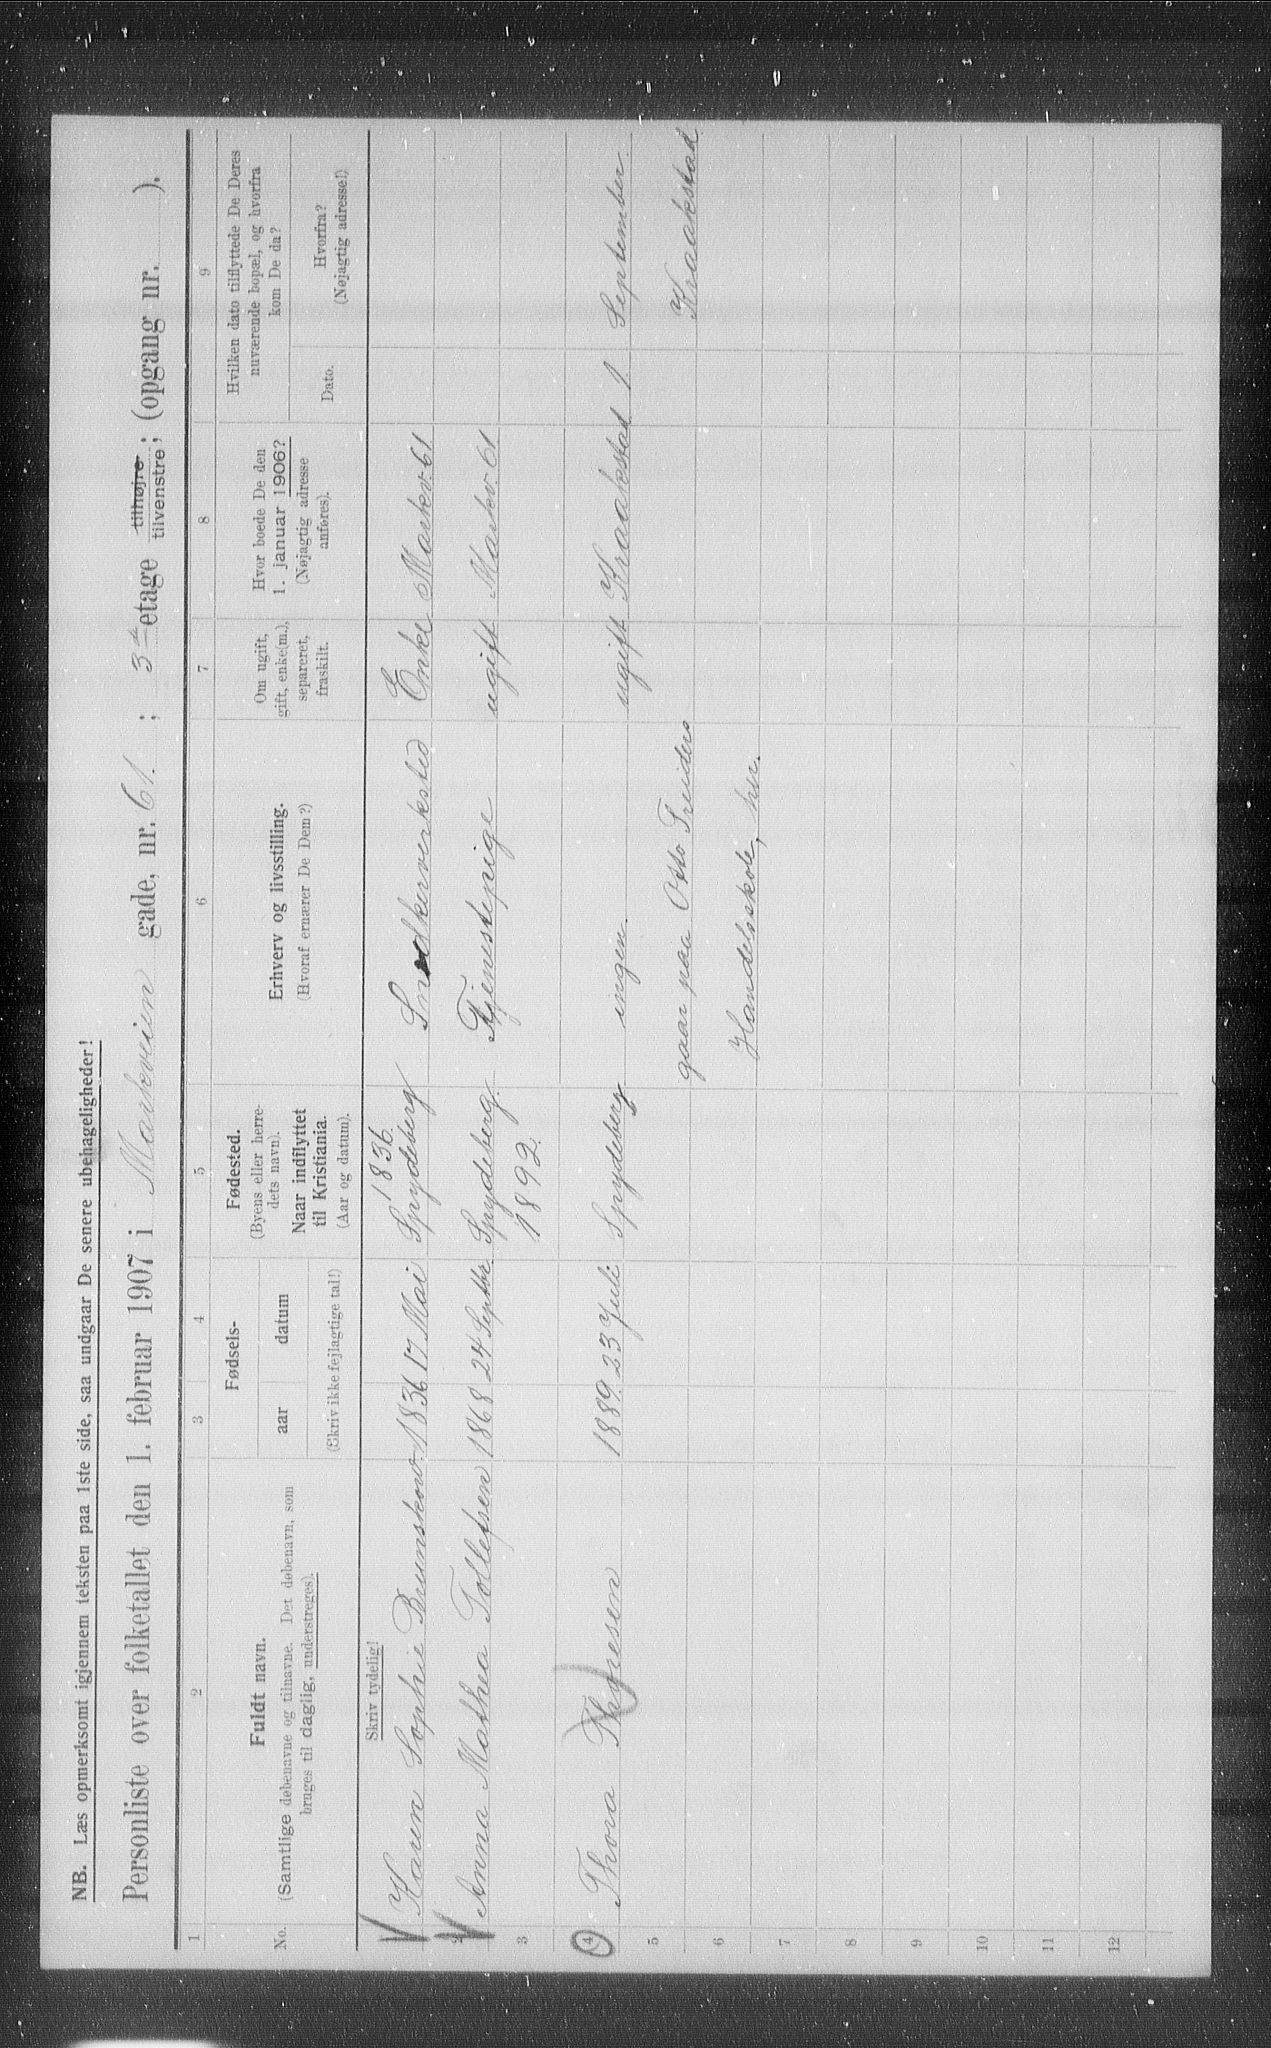 NB. Læs opmerksomt igjennem teksten paa 1ste side, saa undgaar De senere ubehageligheder!
Personliste over folketallet den 1. februar 1907 i Markveien gade, nr. 61. ; 3die etage tilhøjre tilvenstre; (opgang nr. ).
1 2 3 4 5 6 7 8 9
No.
Fuldt navn.
(Samtlige døbenavne og tilnavne. Det døbenavn, som
bruges til daglig, understreges).
Fødsels-
aar datum
(Skriv ikke fejlagtige tal!)
Fødested.
(Byens eller herre-
dets navn).
Naar indflyttet
til Kristiania.
(Aar og datum).
Erhverv og livsstilling.
(Hvoraf ernærer De Dem?)
Om ugift,
gift, enke(m.),
separeret,
fraskilt.
Hvor boede De den
1. januar 1906?
(Nøjagtig adresse
anføres).
Hvilken dato tilflyttede De Deres
nuværende bopæl, og hvorfra
kom De da?
Dato.
Hvorfra?
(Nøjagtig adresse!)
Skriv tydelig!
1836.
Karen Sophie Brunskow. 1836 17 Mai Spydeberg Snedkerverksted Enke Markv. 61
2 Anna Mathea Tollefsen 1868 24 Septbr Spydeberg. Tjenestepige ugift Markv. 61
3 1892.
4 Thora Thoresen 1889. 23 Juli Spydeberg ingen. ugift Kraakestad 1. September
5 gaar paa Otto Treiders Kraakstad
6 Handelsskole, her.
7
8
9
10
11
12